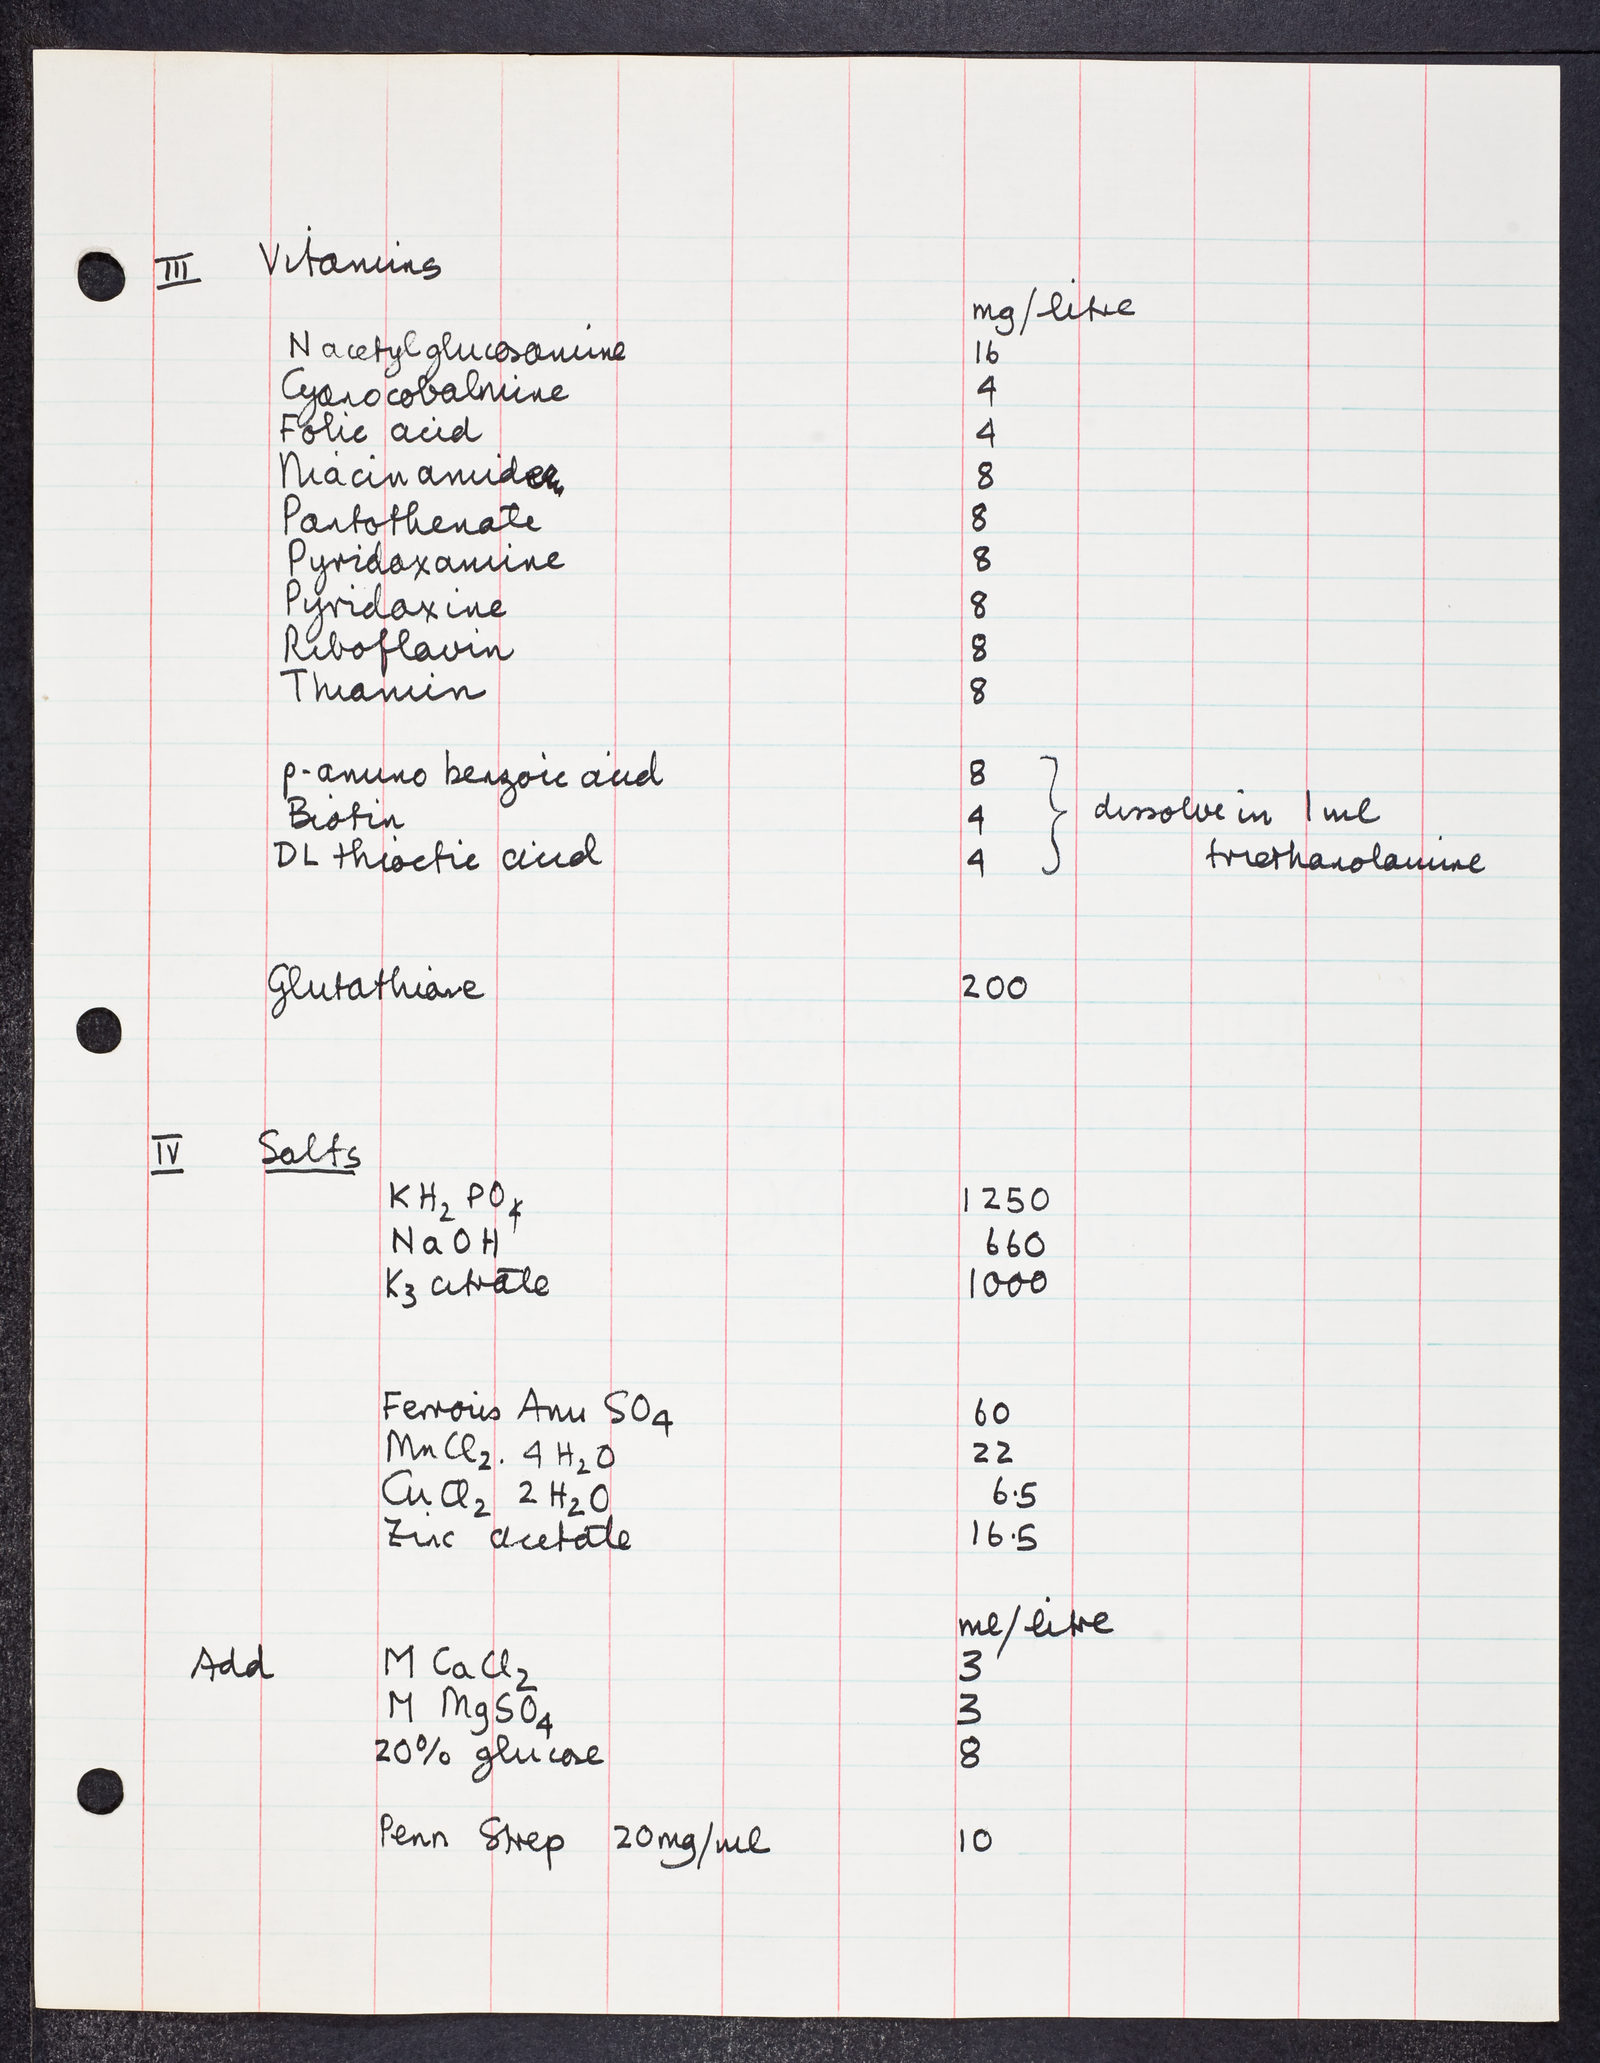 III Vitamins
mg/litre
N acetylglucosamine 16
Cyanocobalmine 4
Folic acid 4
Niacinamide 8
Pantothenate 8
Pyridoxamine 8
Pyridoxine 8
Riboflavin 8
Thiamin 8
p-amino benzoic acid 8
Biotin 4 } dissolve in 1 ml
DL thioctic acid 4 triethanolamine
Glutathione 200
IV Salts
KH₂PO₄ 1250
NaOH 660
K₃ citrate 1000
Ferrous Amm SO₄ 60
MnCl₂. 4H₂O 22
CuCl₂ 2H₂O 6·5
Zinc acetate 16·5
ml/litre
Add M CaCl₂ 3
M MgSO₄ 3
20% glucose 8
Penn Strep 20mg/ml 10